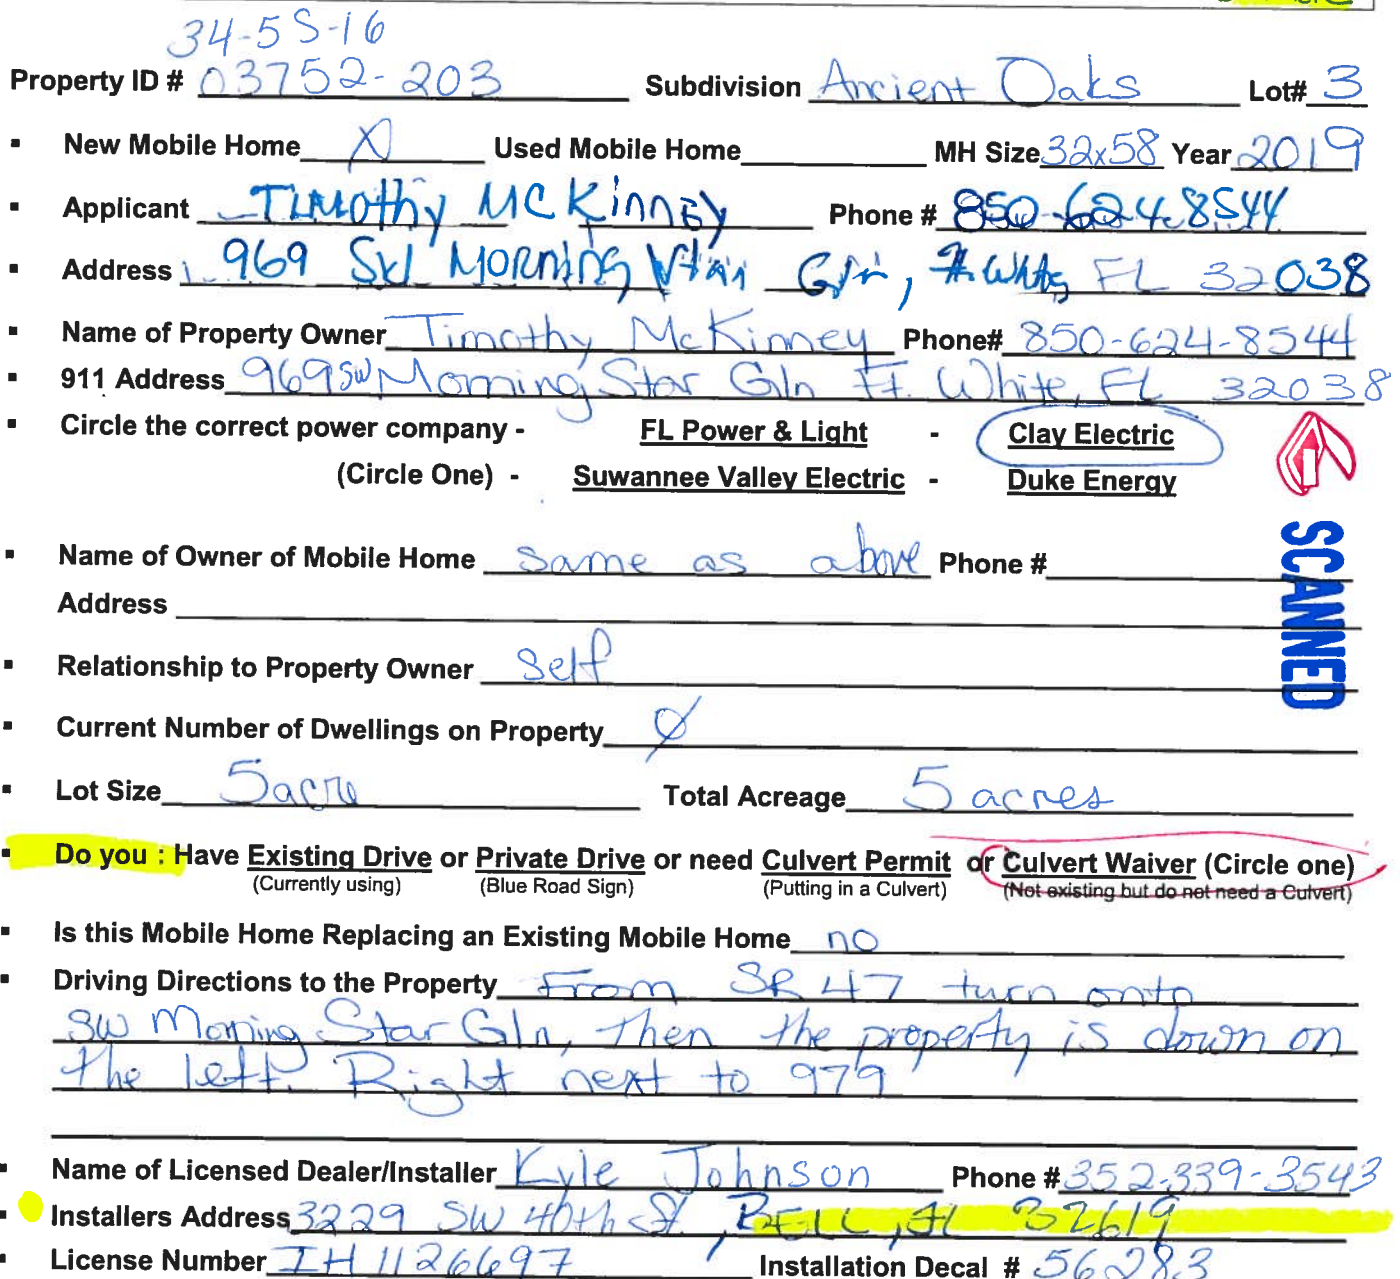 34-5S-16
Property ID # 03752-203 Subdivision Ancient Oaks Lot# 3
▪ New Mobile Home X Used Mobile Home MH Size 32x58 Year 2019
▪ Applicant Timothy McKinney Phone # 850-624-8544
▪ Address 969 SW Morning Star Gln, Ft. White FL 32038
▪ Name of Property Owner Timothy McKinney Phone# 850-624-8544
▪ 911 Address 969 SW Morning Star Gln Ft. White, FL 32038
▪ Circle the correct power company - FL Power & Light - Clay Electric
(Circle One) - Suwannee Valley Electric - Duke Energy
SCANNED
▪ Name of Owner of Mobile Home same as above Phone #
Address
▪ Relationship to Property Owner Self
▪ Current Number of Dwellings on Property Ø
▪ Lot Size 5 acre Total Acreage 5 acres
▪ Do you : Have Existing Drive or Private Drive or need Culvert Permit or Culvert Waiver (Circle one)
(Currently using) (Blue Road Sign) (Putting in a Culvert) (Not existing but do not need a Culvert)
▪ Is this Mobile Home Replacing an Existing Mobile Home no
▪ Driving Directions to the Property From SR 47 turn onto
SW Morning Star Gln, Then the property is down on
the left. Right next to 979
▪ Name of Licensed Dealer/Installer Kyle Johnson Phone # 352-339-3543
▪ Installers Address 3229 SW 40th St, BELL, FL 32619
▪ License Number IH1126697 Installation Decal # 56283